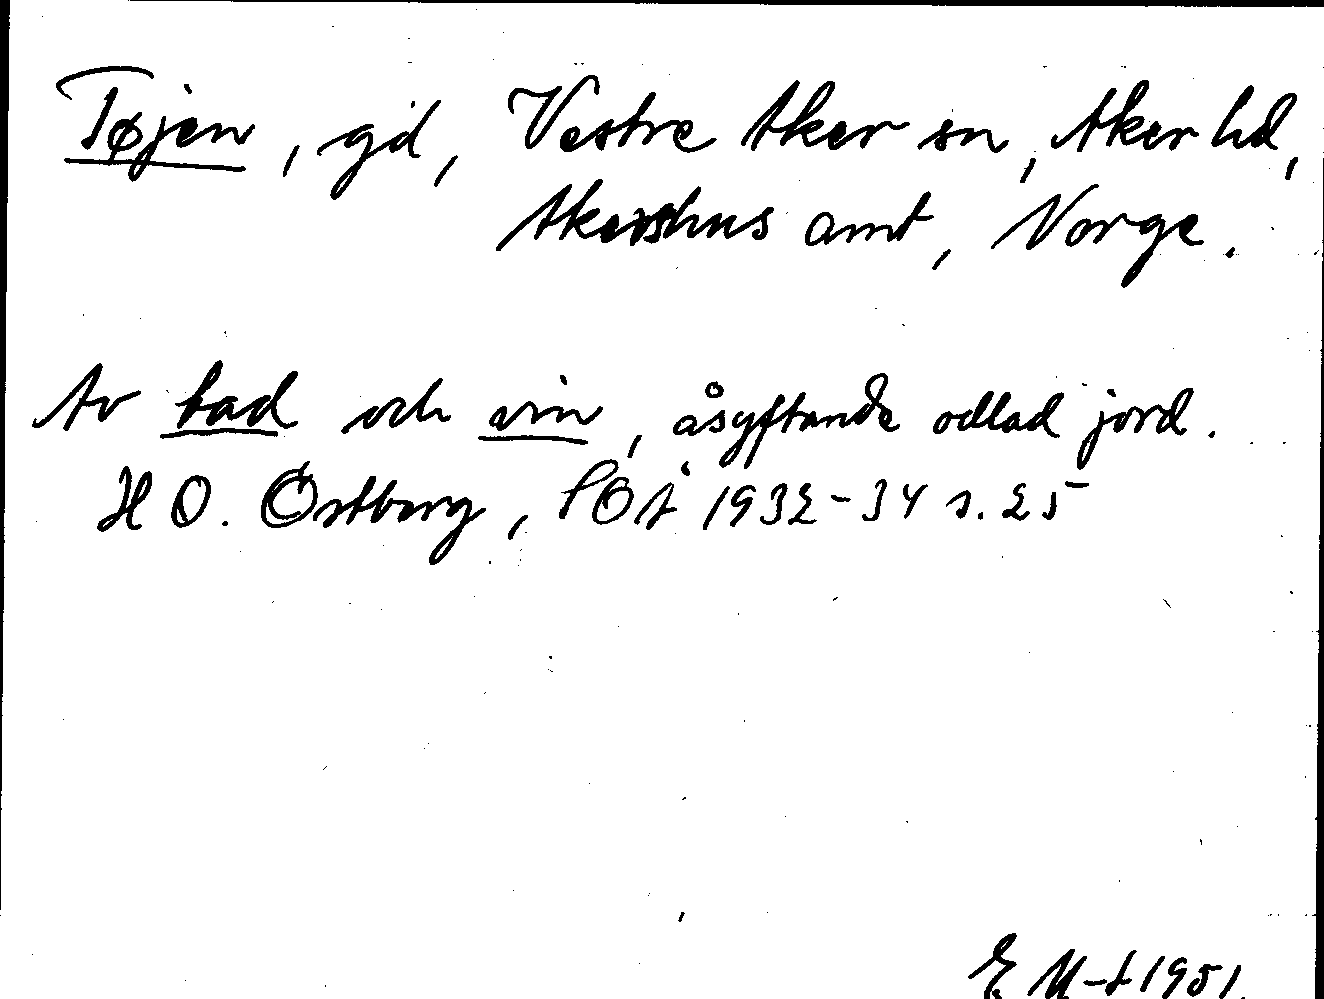 Tøjen, gd, Vestre Aker sn, Aker hd,
Akershus amt, Norge.
Av tad och vin, åsyftande odlad jord.
H O. Östberg, SOÅ 1932-34 s. 25
E M-t 1951.